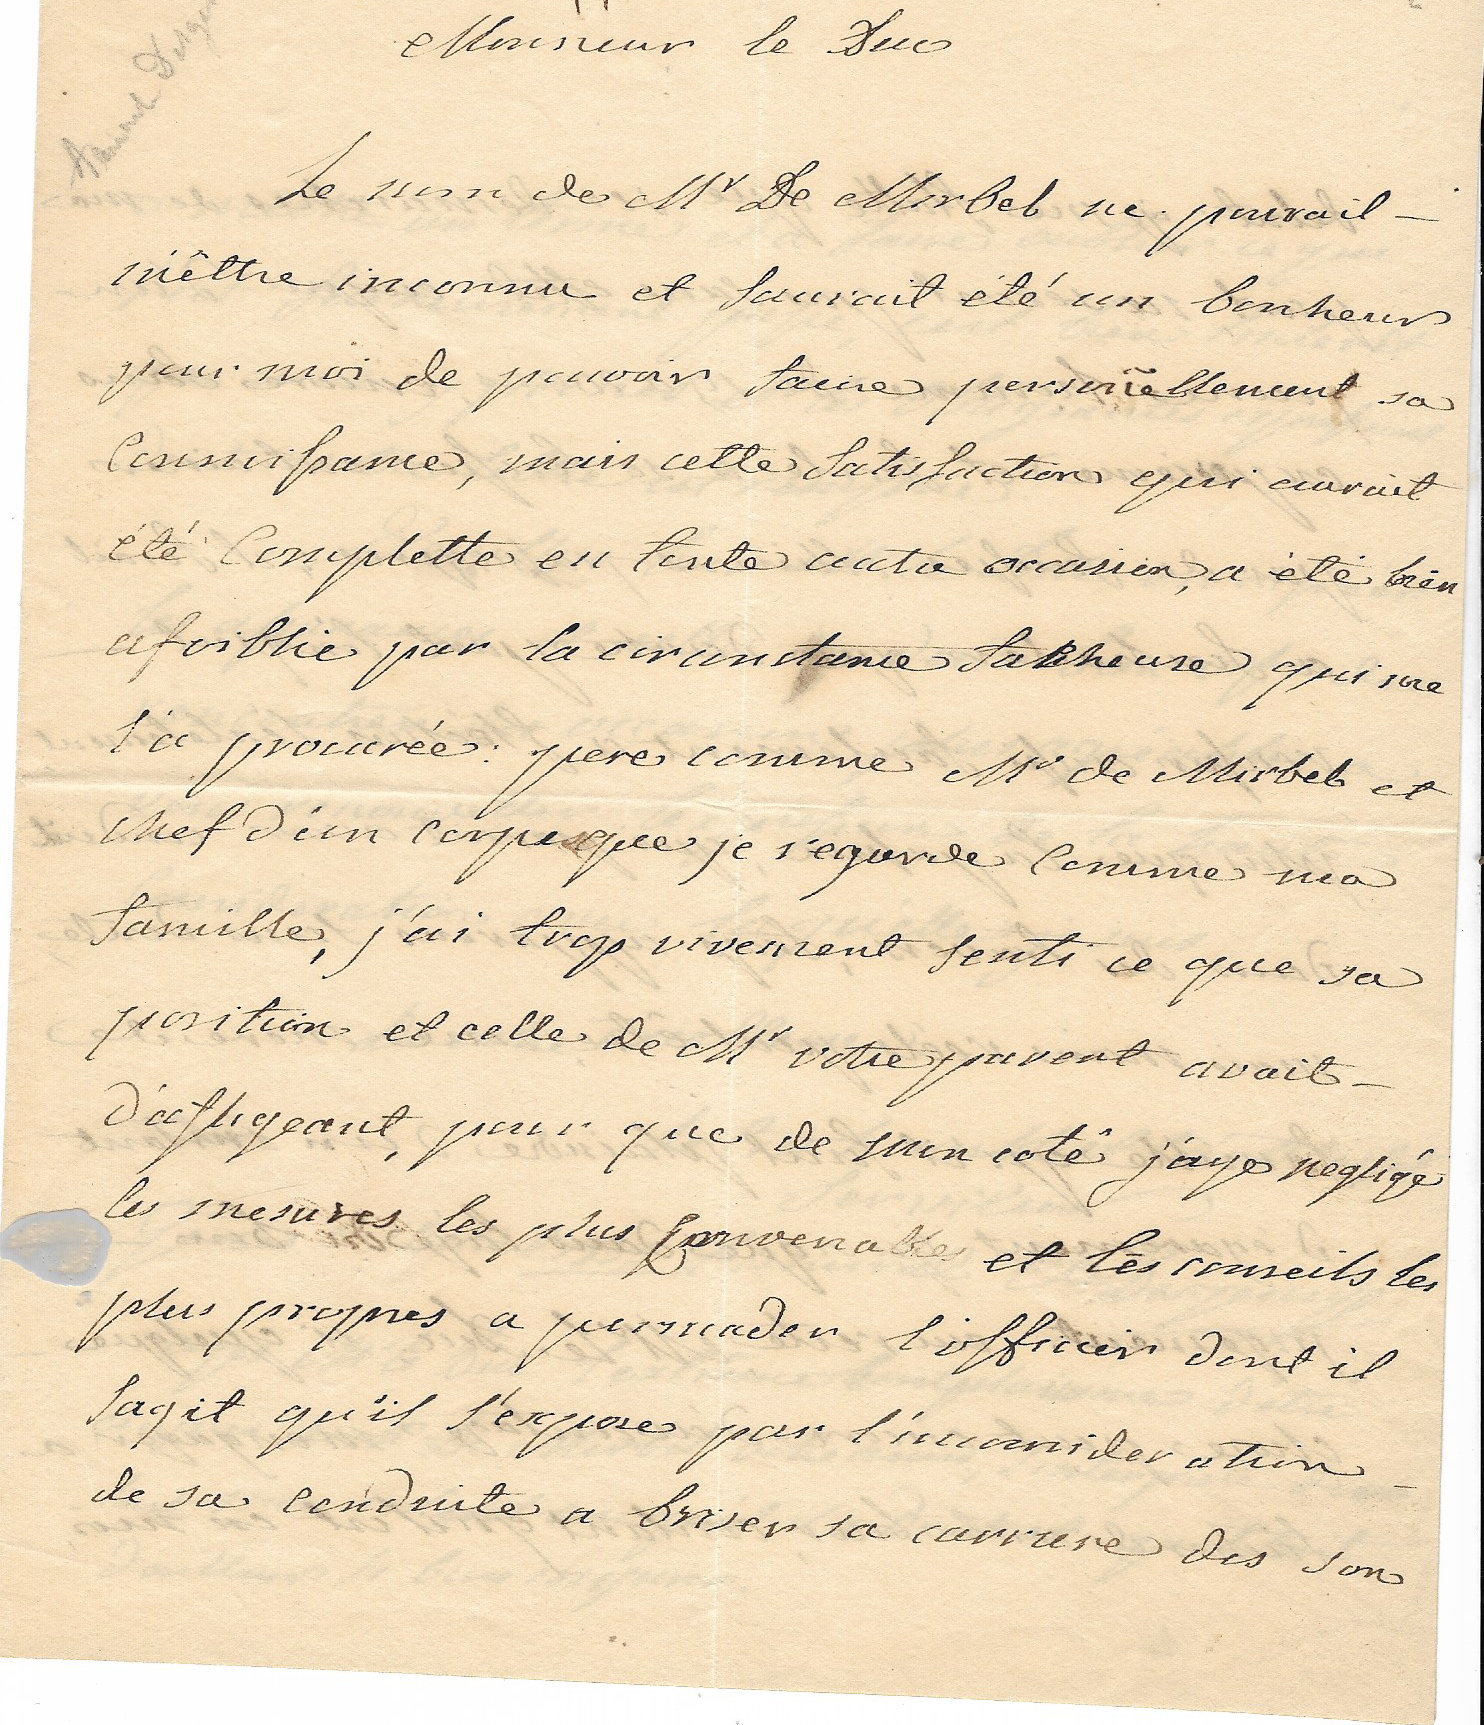 Monsieur le Duc
Le nom de Mr De Mirbel ne pouvait
m'êttre inconnu et s'aurait été un bonheur
pour moi de pouvoir faire personellement sa
Connoissance, mais cette Satisfaction qui aurait
été Complette en toute autre occasion, a été bien
afoiblie par la circonstance facheuse qui me
l'a procurée: pere comme Mr de Mirbel et
chef d'un corps que je regarde Comme ma
famille, j'ai trop vivement senti ce que sa
position et celle de Mr votre parent avait
d'afligeant, pour que de mon coté j'aye negligé
les mesures les plus Convenables et les conseils les
plus propres a persuader l'officier dont il
sagit qu'il s'expose par l'inconsideration
de sa conduite a briser sa carriere dès son